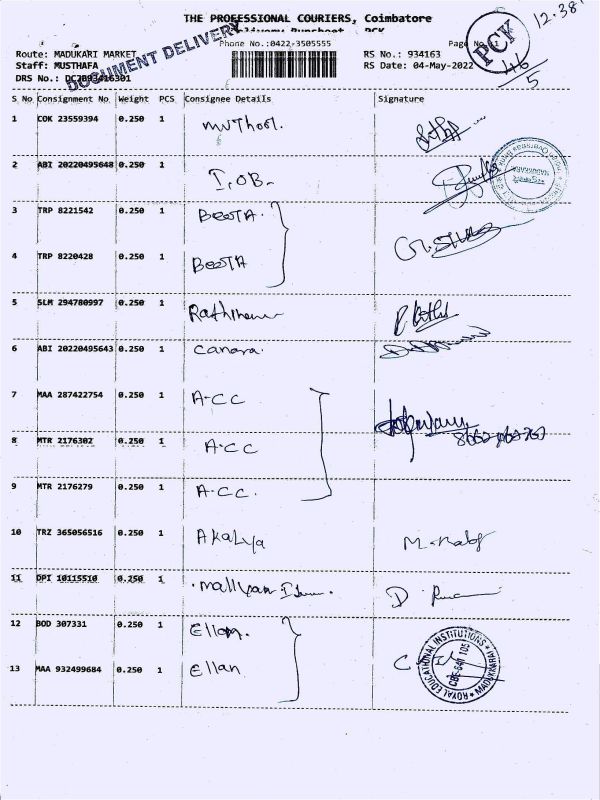 THE PROFESSIONAL COURIERS, Coimbatore
12.38
Delivery Runsheet PCK
DOCUMENT DELIVERY
Phone No.:0422-3505555
Page No
PCK
Route: MADUKARI MARKET
RS No.: 934163
Staff: MUSTHAFA
RS Date: 04-May-2022
46/5
DRS No.:
S No Consignment No Weight PCS Consignee Details Signature
1 COK 23559394 0.250 1 Muthoot.
2 ABI 20220495648 0.250 1 I.OB.
3 TRP 8221542 0.250 1 BeeTA.
4 TRP 8220428 0.250 1 BeeTA
5 SLM 294780997 0.250 1
6 ABI 20220495643 0.250 1 Canara.
7 MAA 287422754 0.250 1 A.CC
8 MTR 2176302 0.250 1 A.CC
9 MTR 2176279 0.250 1 A.CC.
10 TRZ 365056516 0.250 1 Akalya
11 DPI 10115510 0.250 1
12 BOD 307331 0.250 1 Ellam.
13 MAA 932499684 0.250 1 Ellan
ROYAL EDUCATIONAL INSTITUTIONS
CBE-641 105
MADUKKARAI